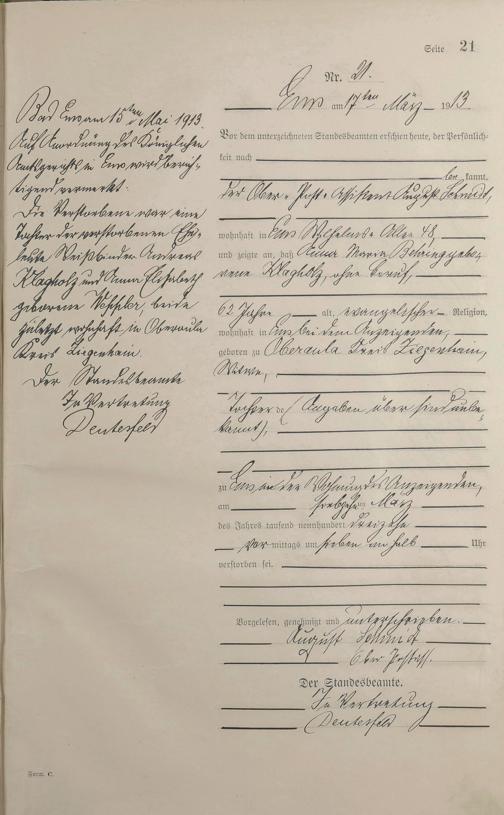 Seite 21
Nr. 21.
Ems am 17ten März 1913
Vor dem unterzeichneten Standesbeamten erschien heute, der Persönlich-
keit nach
kannt,
der Ober-Post-Assistent August Schmidt,
wohnhaft in Ems Wilhelms-Allee 48,
und zeigte an, daß Anna Maria gebo-
rene Klagholz, ohne Beruf,
62 Jahre alt, evangelischer Religion,
wohnhaft in Ems bei dem Anzeigenden,
geboren zu Oberaula Kreis Ziegenhain,
Witwe,
Tochter (Angaben über sind unbe-
kannt),
zu Ems in der Wohnung des Anzeigenden,
am siebzehnten März
des Jahres tausend neunhundert dreizehn
vor mittags um sieben ein halb Uhr
verstorben sei.
Vorgelesen, genehmigt und unterschrieben.
August Schmidt
Ober Postass.
Der Standesbeamte.
In Vertretung
Deutesfeld
Bad Ems am 15ten Mai 1913.
Auf Anordnung des Königlichen
Amtsgerichts in Ems wird berich-
tigend vermerkt:
Die Verstorbene war eine
Tochter der verstorbenen Ehe-
leute Weißbinder Andreas
Klagholz und Anna Elisabeth
geborene beide
zuletzt wohnhaft in Oberaula
Kreis Ziegenhain.
Der Standesbeamte
In Vertretung
Deutesfeld
Form. C.